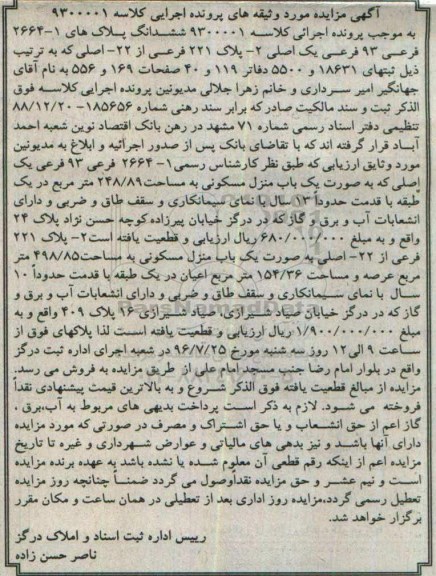 آگهی مزایده مورد وثیقه های پرونده اجرایی کلاسه ۹۳۰۰۰۰۱
به موجب پرونده اجرائی کلاسه ۹۳۰۰۰۰۱ ششدانگ پلاک های ۱-۲۶۶۴
فرعی ۹۳ فرعی یک اصلی ۲- پلاک ۲۲۱ فرعی از ۲۲- اصلی که به ترتیب
ذیل ثبتهای ۱۸۶۳۱ و ۵۵۰۰ دفاتر ۱۱۹ و ۴۰ صفحات ۱۶۹ و ۵۵۶ به نام آقای
جهانگیر امیر سرداری و خانم زهرا جلالی مدیونین پرونده اجرایی کلاسه فوق
الذکر ثبت و سند مالکیت صادر که برابر سند رهنی شماره ۱۸۵۶۵۶- ۸۸/۱۲/۲۰
تنظیمی دفتر اسناد رسمی شماره ۷۱ مشهد در رهن بانک اقتصاد نوین شعبه احمد
آباد قرار گرفته اند که با تقاضای بانک پس از صدور اجرائیه و ابلاغ به مدیونین
مورد وثایق ارزیابی که طبق نظر کارشناس رسمی ۱- ۲۶۶۴ فرعی ۹۳ فرعی یک
اصلی که به صورت یک باب منزل مسکونی به مساحت ۲۴۸/۸۹ متر مربع در یک
طبقه با قدمت حدوداً ۱۳ سال با نمای سیمانکاری و سقف طاق و ضربی و دارای
انشعابات آب و برق و گاز که در درگز خیابان پیرزاده کوچه حسن نژاد پلاک ۲۴
واقع و به مبلغ ۶۸۰/۰۰۰/۰۰۰ ریال ارزیابی و قطعیت یافته است ۲- پلاک ۲۲۱
فرعی از ۲۲- اصلی به صورت یک باب منزل مسکونی به مساحت ۴۹۸/۸۵ متر
مربع عرصه و مساحت ۱۵۴/۳۶ متر مربع اعیان در یک طبقه با قدمت حدوداً ۱۰
سال با نمای سیمانکاری و سقف طاق و ضربی و دارای انشعابات آب و برق و
گاز که در درگز خیابان صیاد شیرازی، صیاد شیرازی ۱۶ پلاک ۴۰۹ واقع و به
مبلغ ۱/۹۰۰/۰۰۰/۰۰۰ ریال ارزیابی و قطعیت یافته است لذا پلاکهای فوق از
ساعت ۹ الی ۱۲ روز سه شنبه مورخ ۹۶/۷/۲۵ در شعبه اجرای اداره ثبت درگز
واقع در بلوار امام رضا جنب مسجد امام علی از طریق مزایده به فروش می رسد.
مزایده از مبالغ قطعیت یافته فوق الذکر شروع و به بالاترین قیمت پیشنهادی نقداً
فروخته می شود. لازم به ذکر است پرداخت بدیهی های مربوط به آب،برق ،
گاز اعم از حق انشعاب و یا حق اشتراک و مصرف در صورتی که مورد مزایده
دارای آنها باشد و نیز بدهی های مالیاتی و عوارض شهرداری و غیره تا تاریخ
مزایده اعم از اینکه رقم قطعی آن معلوم شده یا نشده باشد به عهده برنده مزایده
است و نیم عشر و حق مزایده نقداً وصول می گردد ضمناً چنانچه روز مزایده
تعطیل رسمی گردد،مزایده روز اداری بعد از تعطیلی در همان ساعت و مکان مقرر
برگزار خواهد شد.
رییس اداره ثبت اسناد و املاک درگز
ناصر حسن زاده